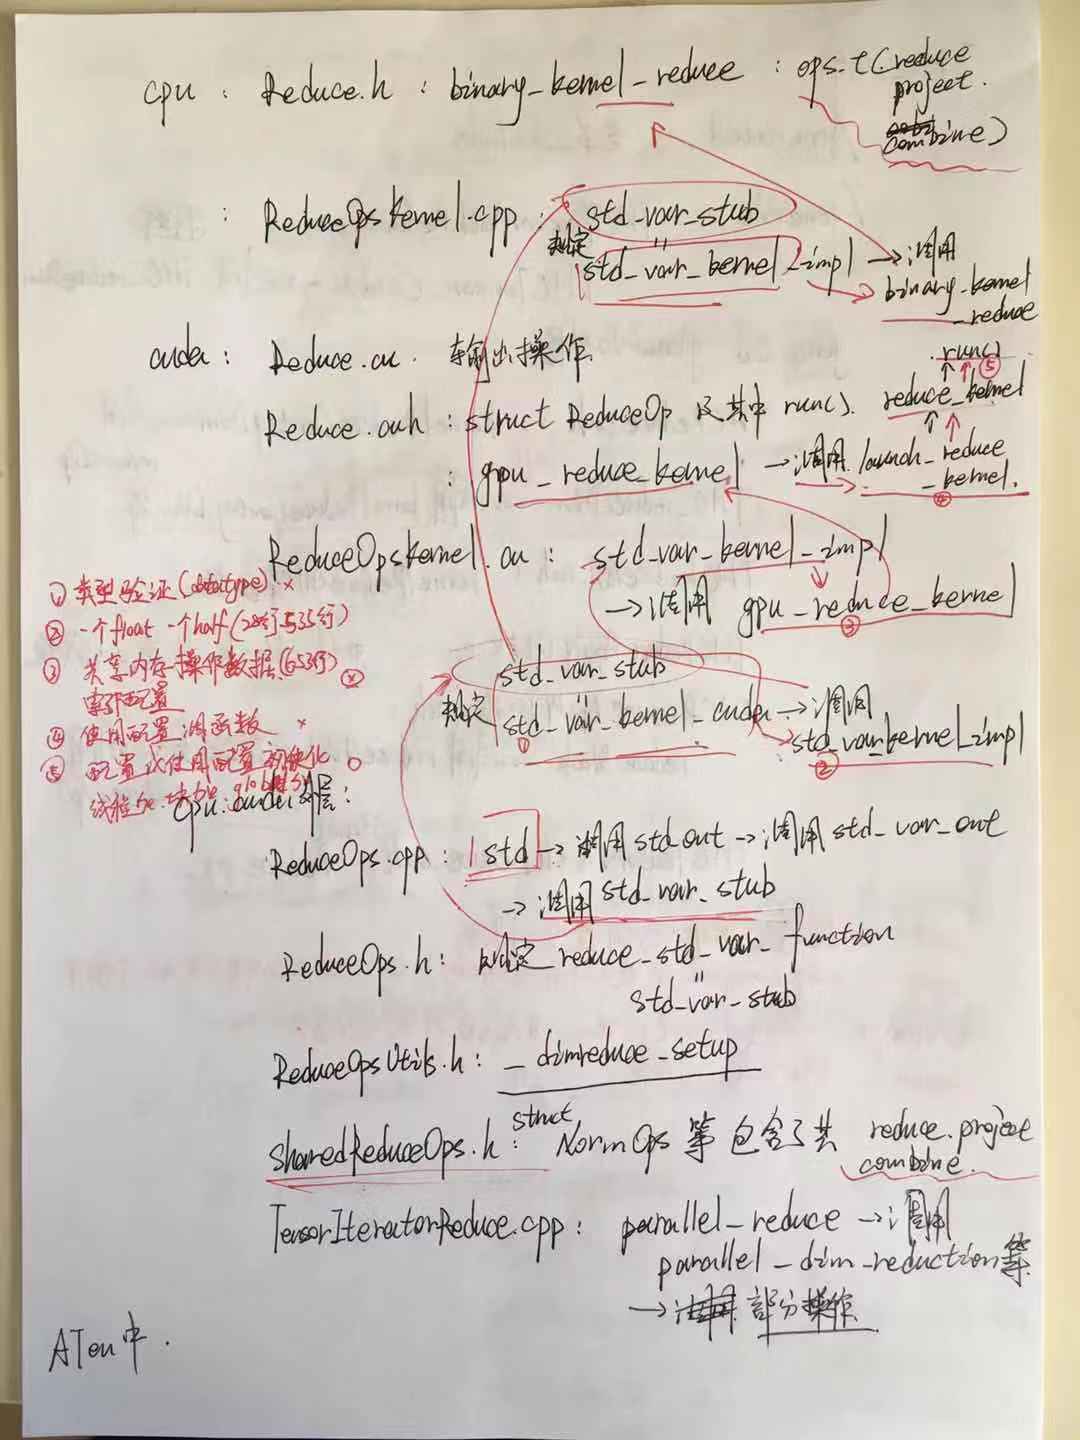 cpu : Reduce.h : binary_kernel_reduce : ops_t(reduce
project.
combine)
: ReduceOpsKernel.cpp : std_var_stub
规定 "
std_var_kernel_impl → 调用
binary_kernel
_reduce
cuda : Reduce.cu. 输出操作.
.run() ⑤
Reduce.cuh : struct ReduceOp 及其中 run(). reduce_kernel
: gpu_reduce_kernel → 调用 launch_reduce
_kernel. ④
ReduceOpsKernel.cu : std_var_kernel_impl
→ 调用 gpu_reduce_kernel
③
① 类型验证(datatype) ×
② 一个float 一个half(
③ 共享内存操作数据(653行)
索引配置
④ 使用配置调函数 ×
⑤ 配置
std_var_stub
规定 "
std_var_kernel_cuda → 调用
① std_varkernel_impl
②
cpu.cuda外层:
ReduceOps.cpp : std → 调用 std_out → 调用 std_var_out
→ 调用 std_var_stub
ReduceOps.h : 规定 reduce_std_var_function
"
std_var_stub
ReduceOpsUtils.h : _dimreduce_setup
struct
SharedReduceOps.h : NormOps 等包含了其 reduce.project
combine.
TensorIteratorReduce.cpp : parallel_reduce → 调用
parallel_dim_reduction等
→ 调用 部分操作.
ATen中.